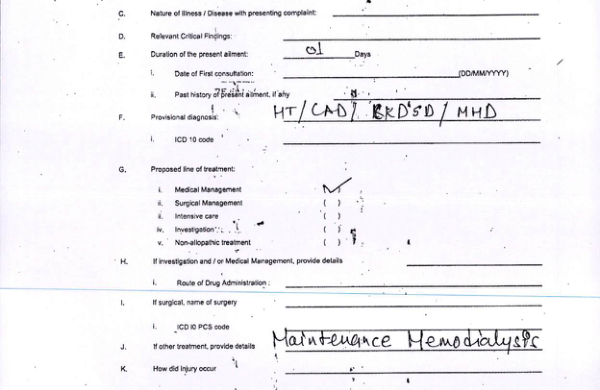 C. Nature of Illness / Disease with presenting complaint:
D. Relevant Critical Findings:
E. Duration of the present ailment: 01 Days
i. Date of First consultation: (DD/MM/YYYY)
ii. Past history of present ailment, if any
F. Provisional diagnosis: HT/ CAD/ CKD5D / MHD
i. ICD 10 code
G. Proposed line of treatment:
i. Medical Management ✓
ii. Surgical Management ( )
iii. Intensive care ( )
iv. Investigation ( )
v. Non-allopathic treatment ( )
H. If investigation and / or Medical Management, provide details
i. Route of Drug Administration :
I. If surgical, name of surgery
i. ICD I0 PCS code
J. If other treatment, provide details Maintenance Hemodialysis
K. How did injury occur